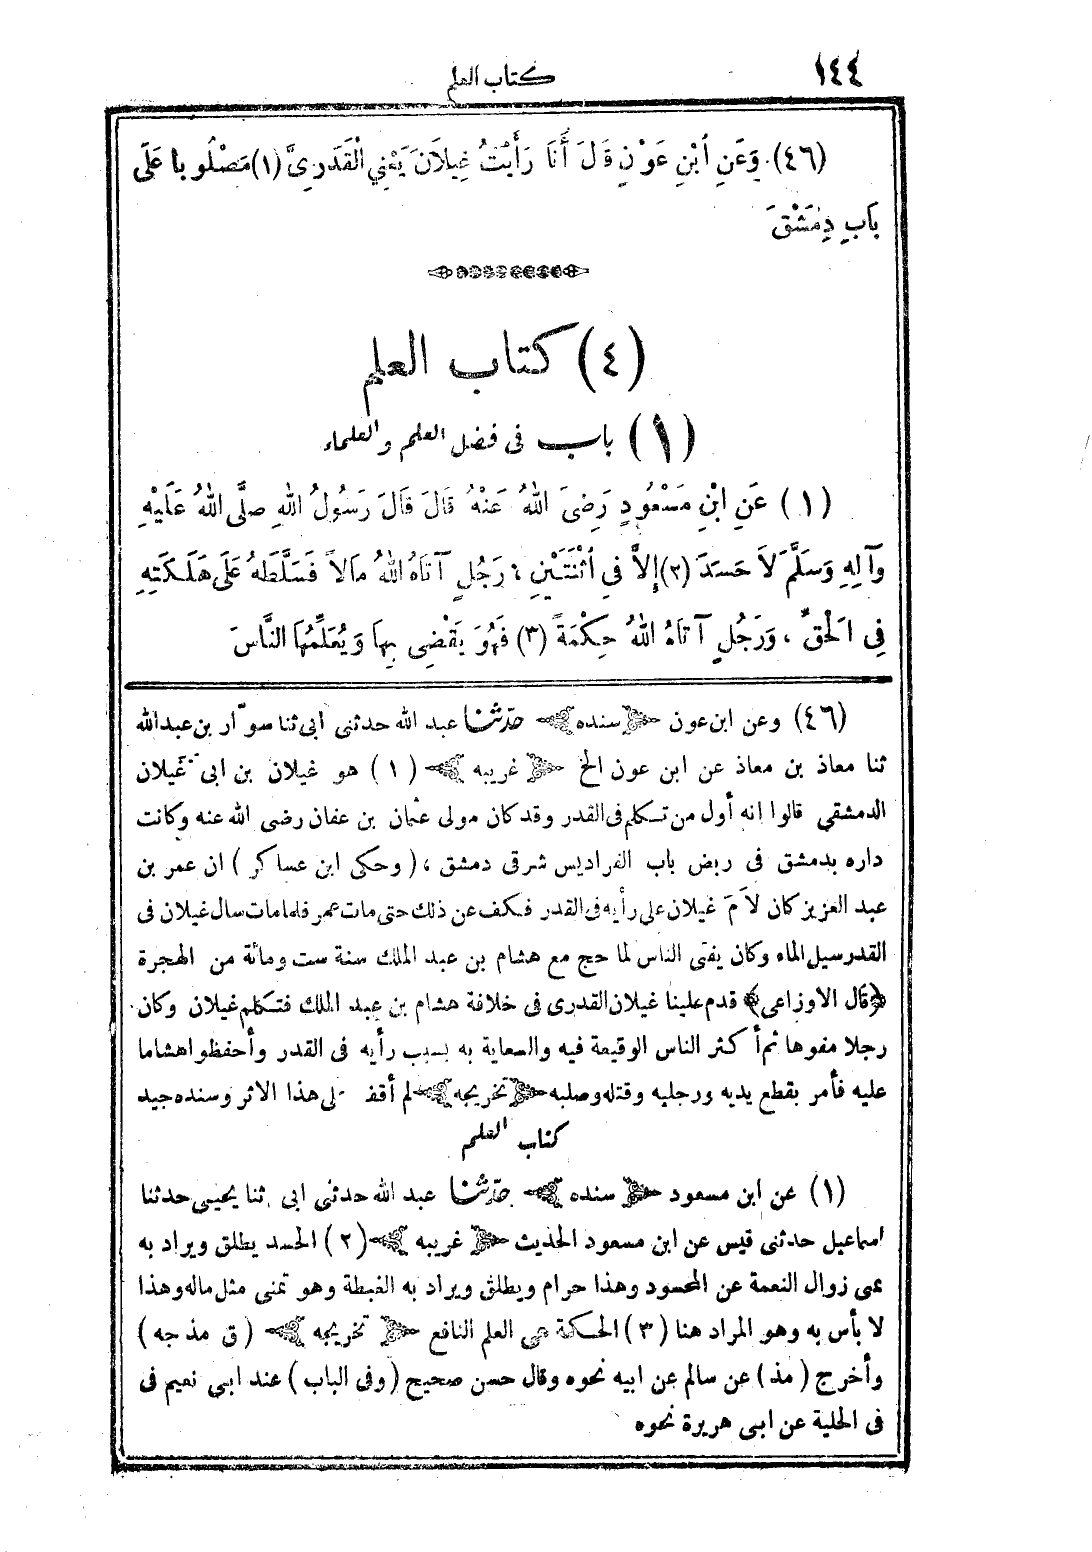 ١٤٤
كتاب العلم
(٤٦) وَعَنِ ٱبْنِ عَوْنٍ قَالَ أَنَا رَأَيْتُ غَيلاَنَ يَعْنِي الْقَدَرِىَّ (١) مَصْلُوبا عَلَى
بَابِ دِمَشْقَ
(٤) كتاب العلم
(١) باب فى فضل العلم والعلماء
(١) عَنِ ابْنِ مَسْعُودٍ رَضِىَ اللهُ عَنْهُ قَالَ قَالَ رَسُولُ اللهِ صلَّى اللهُ عَلَيْهِ
وَآلِهِ وَسَلَّمَ لاَ حَسَدَ (٢) إِلاَّ فِى ٱثْنَتَيْنِ ، رَجُلٍ آتَاهُ اللهُ مالاً فَسَلَّطَهُ عَلَى هَلَكَتِهِ
فِى الْحَقِّ ، وَرَجُلٍ آتَاهُ اللهُ حِكْمَةً (٣) فَهُوَ يَقْضِى بِهَا وَيُعَلِّمُهَا النَّاسَ
(٤٦) وعن ابن عون ﴿سنده﴾ حدّثنا عبد الله حدثنى أبى ثنا سوّار بن عبد الله
ثنا معاذ بن معاذ عن ابن عون الخ ﴿غريبه﴾ (١) هو غيلان بن ابى غيلان
الدمشقي قالوا انه أول من تكلم فى القدر وقد كان مولى عثمان بن عفان رضى الله عنه وكانت
داره بدمشق فى ربض باب الفراديس شرقى دمشق ، (وحكى ابن عساكر) ان عمر بن
عبد العزيز كان لاَمَ غيلان على رأيه فى القدر فكف عن ذلك حتى مات عمر فلما مات سال غيلان فى
القدر سيل الماء وكان يفتى الناس لما حج مع هشام بن عبد الملك سنة ست ومائة من الهجرة
﴿قال الاوزاعى﴾ قدم علينا غيلان القدرى فى خلافة هشام بن عبد الملك فتكلم غيلان وكان
رجلا مفوها ثم أكثر الناس الوقيعة فيه والسعاية به بسبب رأيه فى القدر وأحفظوا هشاما
عليه فأمر بقطع يديه ورجليه وقتله وصلبه ﴿تخريجه﴾ لم أقف على هذا الاثر وسنده جيد
كتاب العلم
(١) عن ابن مسعود ﴿سنده﴾ حدّثنا عبد الله حدثنى ابى ثنا يحيى حدثنا
اسماعيل حدثنى قيس عن ابن مسعود الحديث ﴿غريبه﴾ (٢) الحسد يطلق ويراد به
تمنى زوال النعمة عن المحسود وهذا حرام ويطلق ويراد به الغبطة وهو تمنى مثل ماله وهذا
لا بأس به وهو المراد هنا (٣) الحكمة هى العلم النافع ﴿تخريجه﴾ (ق مذ جه)
وأخرج (مذ) عن سالم عن ابيه نحوه وقال حسن صحيح (وفى الباب) عند ابى نعيم فى
فى الحلية عن ابى هريرة نحوه